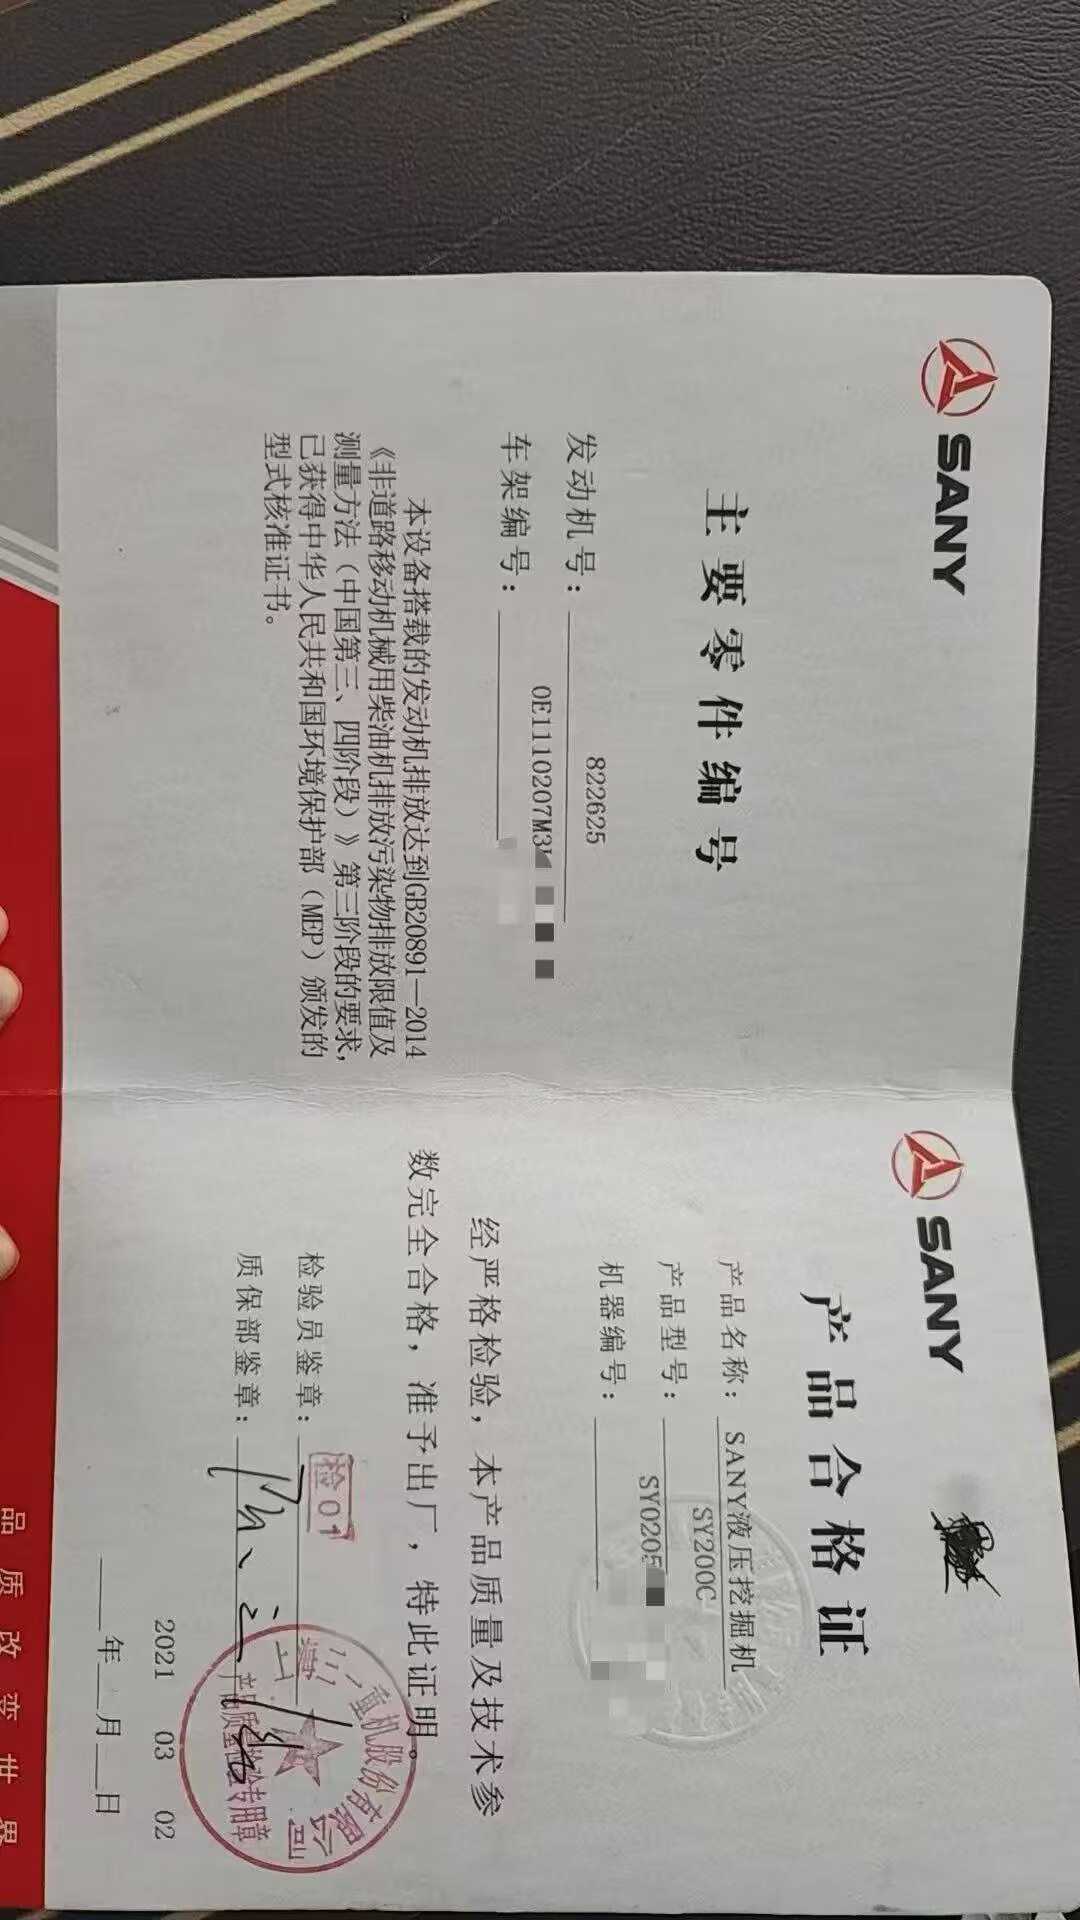 SANY
主要零件编号
发动机号：822625
车架编号：0E1110207M3
本设备搭载的发动机排放达到GB20891—2014
《非道路移动机械用柴油机排放污染物排放限值及
测量方法（中国第三、四阶段）》第三阶段的要求，
已获得中华人民共和国环境保护部（MEP）颁发的
型式核准证书。
SANY
产品合格证
产品名称：SANY液压挖掘机
产品型号：SY200C
机器编号：SY0205
经严格检验，本产品质量及技术参
数完全合格，准予出厂，特此证明。
检验员鉴章：检01
质保部鉴章：
三一重机股份有限公司
产品质量检验专用章
2021 03 02
年 月 日
品质改变世界